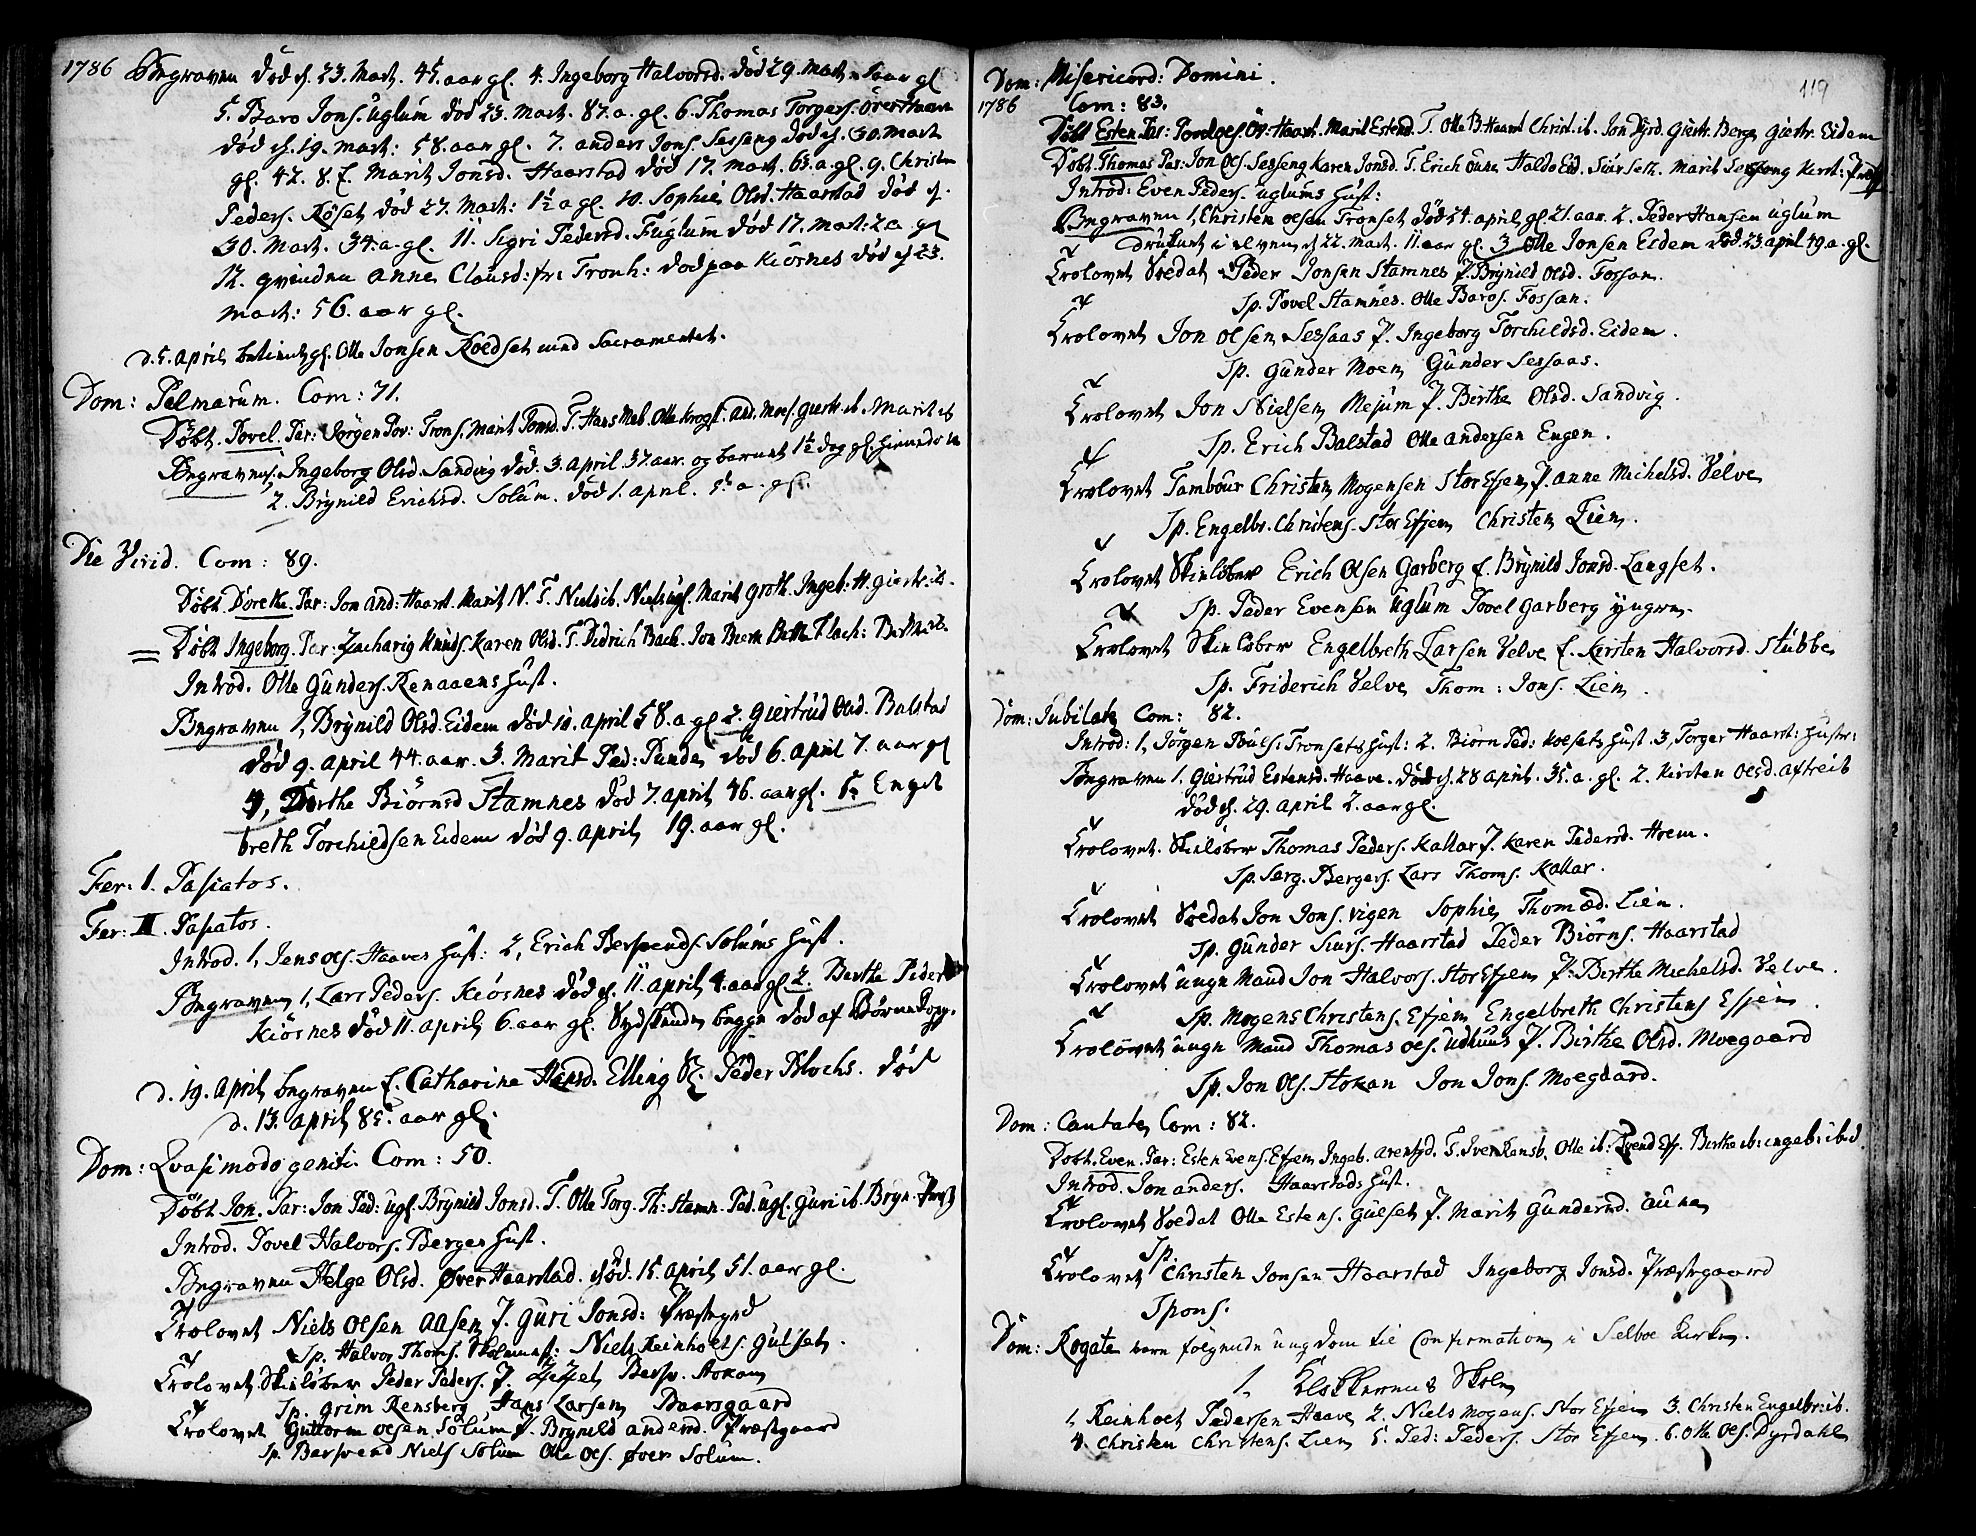 1786 Begraven død d. 23. Mart. 45. aar gl. 4. Ingeborg Halvorsd. død 29. Mart. aar gl
5. Baro Jons. Uglum død 23. Mart. 87. a. gl. 6. Thomas Torgers. øver Haar
død d. 19. Mart: 58. aar gl. 7. anders Jons. Sesseng død d. 30. Mart
gl. 42. 8. E. Marit Jonsd. Haarstad død 17. Mart. 63. a. gl. 9. Christen
Peders. Røset død 27. Mart: 1½ a gl. 10. Sophie Olsd. Haarstad død d.
30. Mart. 34. a. gl. 11. Sigri Pedersd. Fuglum død 17. Mart: 2 a. gl
12. qvinden anne Clausd: fra Tronh: død paa Kiösnes død d 23.
Mart: 56. aar gl.
d. 5. april betient gl. Olle Jonsen Roedset med Sacramentet.
Dom: Palmarum. Com: 71.
Döbt. Povel. Par: Jörgen Pov: Trons. Marit Jonsd. T. Hans Meb. Olle Krogst. And. Moes. Giertr. ib. Marit ib
Begraven 1. Ingeborg Olsd. Sandvig död. 3. april 37. aar. og barnet 1½ dag gl.
2. Brynild Erichsd. Solum. död 1. april. 5½ a. gl.
Die Virid. Com: 89.
Döbt. Dorethe. Par: Jon And: Haarst. Marit N. T. Niels ib. Niels Ugl. Marit Groth. Ingeb. H. Giertr. ib.
Döbt Ingeborg. Par: Zacharig Knuds. Karen Olsd. T. Didrich Bach. Jon Bierk Flach:
Introd. Olle Gunders. Renaaens Hust.
Begraven 1, Brynild Olsd. Eidem död 10. april 58. a gl 2. Giertrüd Olsd. Balstad
död 9. april 44. aar. 3. Marit Ped: Punde, död 6. april 7. aar gl
4, Dorthe Biörnsd Stamnes död 7. april 46. aar gl. 5. Engel
breth Torchildsen Eidem död 9. april 19. aar gl.
Fer: I. Pasiatos.
Fer: II. Pasatos.
Introd. 1, Jens Ols. Haaves Hust: 2, Erich Berspends. Solums Hust.
Begraven 1, Lars Peders. Kiösnes död d. 11. april 4. aar gl 2. Berthe Peders
Kiösnes död 11. april 6. aar gl. Sydskende begge död af Börne Kopp.
d. 19. april begraven E. Catharine Hansd. Elling Sl. Peder Blochs. död
d. 13. april 85. aar gl.
Dom: Qvasimodo geniti. Com: 50.
Döbt Jon. Par: Jon Ped: Ugl. Brynild Jonsd. T. Olle Torg. Th: Stamn. Ped. Ugl. Guri ib. Bryn.
Introd. Povel Halvors. Berges Hust.
Begraven Helge Olsd. øver Haarstad. död. 15. april 51. aar gl.
Trolovet Niels Olsen Aasen P. Guri Jonsd: Præstegrd
Sp. Halvor Thoms. Niels Reinholts. Gulset.
Trolovet Skielöber Peder Peders. P. Zezzel Bersv. Aokan
Sp. Grim Rensberg Hans Larsen Baarsgaard
Trolovet Guttorm Olsen Solum P. Brynild andersd. Præstgaard
Sp. Barsvend Niels Solum Olle Ols. øver Solum.
119
Dom: Misericord: Domini.
1786 Com: 83.
Döbt Esten Par: Povel Ols. Öv: Haarst. Marit Estensd. T. Olle B. Haarst Christ. ib. Jon Dyrd. Giertr. Berge Giertr. Eidem
Döbt. Thomas Par: Jon Ols. Sesseng Karen Jonsd. T. Erich Aune Haldo Eid. Siur Seth. Marit Sesseng Kirst:
Introd: Even Peders. Uglums Hust:
Begraven 1, Christen Olsen Tronset död 24. april gl 21. aar. 2. Peder Hansen Uglum
druknet i elven d 22. Mart. 11. aar gl. 3 Olle Jonsen Eidem död. 23. april 49. a. gl.
Trolovet Soldat Peder Jonsen Stamnes P. Brynild Olsd. Fossan.
Sp. Povel Stamnes. Olle Baros. Fossan.
Trolovet Jon Olsen Sessaas P. Ingeborg Torchildsd. Eidem.
Sp. Gunder Moen Gunder Sessaas.
Trolovet Jon Nielsen Mejum P. Birthe Olsd. Sandvig.
Sp. Erich Balstad Olle andersen Engen.
Trolovet Tambour Christen Mogensen Stor Efjem P. anne Michelsd. Velve
Sp. Engelbr. Christens. Stor Efjem Christen Lien.
Trolovet Skielöber Erich Olsen Garberg E. Brynild Jonsd. Langset.
Sp. Peder Evensen Uglum Povel Garberg yngre.
Trolovet Skielöber Engelbreth Larsen Velve E. Kirsten Halvorsd. Stubbe
Sp. Friderich Velve Thom: Jons. Lien.
Dom: Jubilate Com: 82.
Introd: 1, Jörgen Pouls: Tronsets Hust: 2. Biörn Ped: Kolsets Hust. 3, Torger Haarst: Hustr:
Begraven 1. Giertrud Estensd. Haave. död d. 28 april. 35. a. gl. 2. Kirsten Olsd. Aftreib
död d. 29. april 2. aar gl.
Trolovet. Skielöber Thomas Peders. Kallar P. Karen Pedersd. Hoem.
Sp. Serg. Bergers. Lars Thoms. Kallar.
Trolovet Soldat Jon Jons. Vigen Sophie Thomæd. Lien.
Sp. Gunder Siurs. Haarstad Peder Biörns. Haarstad
Trolovet Unge Mand Jon Halvors. Stor Efjem P. Birthe Michelsd. Velve.
Sp. Mogens Christens. Efjem Engelbreth Christens Efjem.
Trolovet Unge Mand Thomas Ols. Udhuus P. Birthe Olsd. Moegaard
Sp. Jon Ols. Stokan Jon Jons. Moegaard.
Dom: Cantate Com: 82.
Döbt. Even. Par: Esten Evens. Efjem Ingeb. Arentsd. T. Iver Rensb. Olle ib: Svend Efj. Birthe ib: ingeb: ibid.
Introd. Jon anders. Haarstads Hust.
Trolovet Soldat Olle Estens. Gulset P. Marit Gundersd. Aune
Sp.
Trolovet Christen Jonsen Haarstad Ingeborg Jonsd. Præstegaard
Spons.
Dom: Rogate vare fölgende ungdom til Confirmation i Selboe Kirke.
1, Klokkerens Skole
1, Reinholt Pedersen Haave 2. Niels Mogens. Stor Efjem 3. Christen Engelbr: ib.
4. Christen Christens. Lien 5. Ped: Peders. Stor Efjem. 6. Olle Ols. Dyrdahl